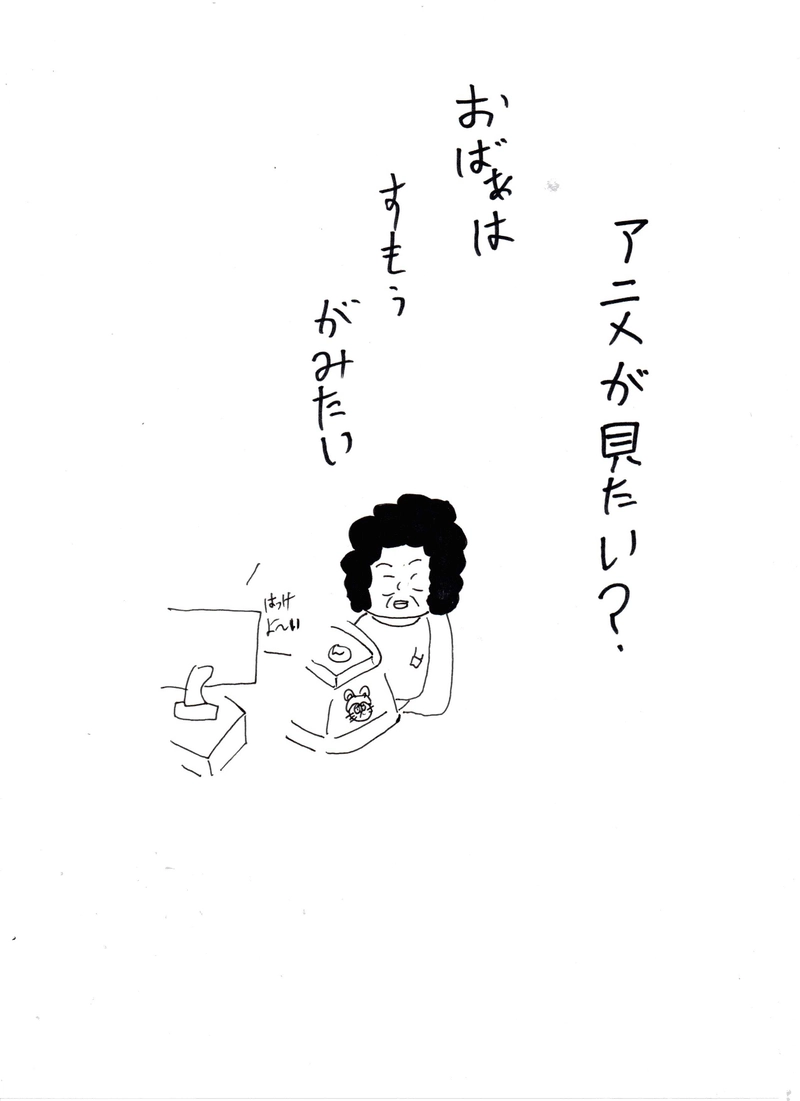 アニメが見たい？
おばぁは
すもう
がみたい
はっけ
よ〜い